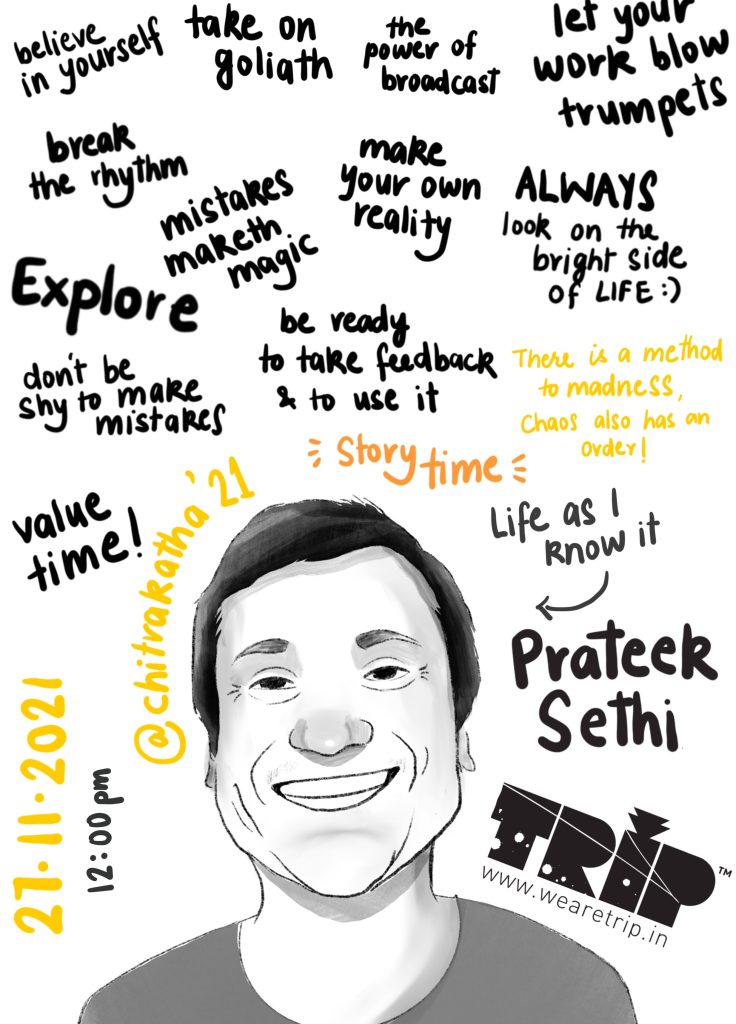 believe
in yourself
take on
goliath
the
power of
broadcast
let your
work blow
trumpets
break
the rhythm
mistakes
maketh
magic
make
your own
reality
ALWAYS
look on the
bright side
of LIFE :)
Explore
be ready
to take feedback
& to use it
don't be
shy to make
mistakes
There is a method
to madness,
Chaos also has an
order!
Story time
value
time!
@chitrakatha'21
Life as I
know it
Prateek
Sethi
27.11.2021
12:00 pm
TRIP™
www.wearetrip.in